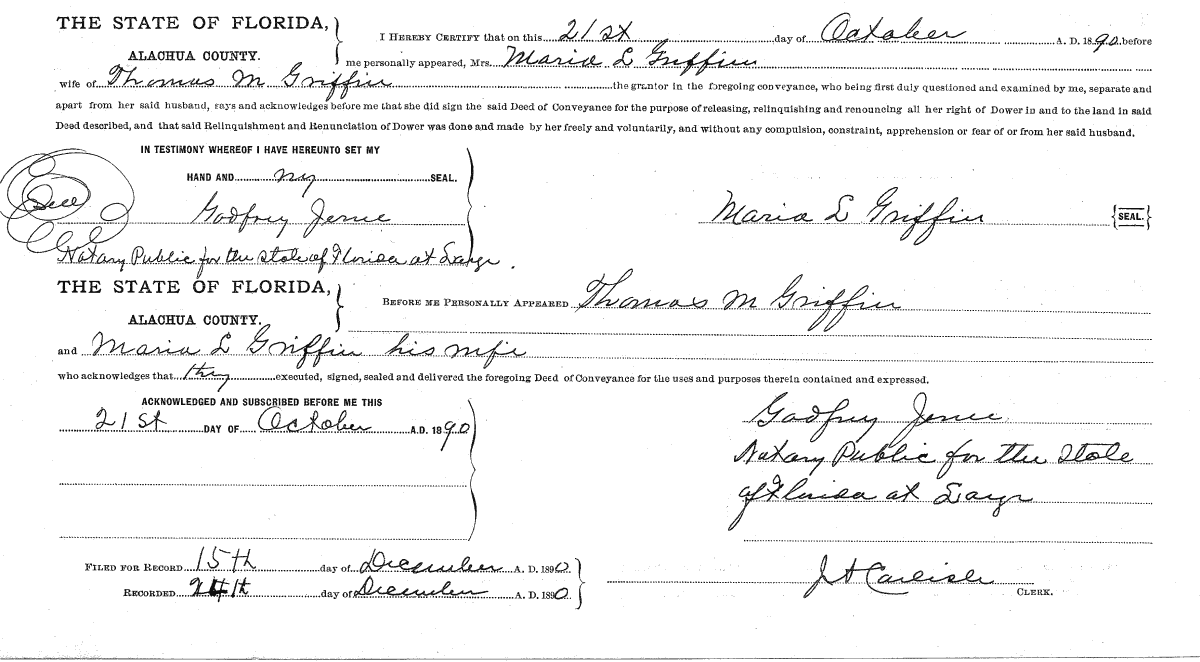 THE STATE OF FLORIDA,
ALACHUA COUNTY.
I HEREBY CERTIFY that on this 21st day of October A. D. 1890 before
me personally appeared, Mrs. Maria L Griffin
wife of Thomas M Griffin the grantor in the foregoing conveyance, who being first duly questioned and examined by me, separate and
apart from her said husband, says and acknowledges before me that she did sign the said Deed of Conveyance for the purpose of releasing, relinquishing and renouncing all her right of Dower in and to the land in said
Deed described, and that said Relinquishment and Renunciation of Dower was done and made by her freely and voluntarily, and without any compulsion, constraint, apprehension or fear of or from her said husband.
IN TESTIMONY WHEREOF I HAVE HEREUNTO SET MY
HAND AND my SEAL.
Seal
Godfrey
Maria L Griffin {SEAL.}
Notary Public for the State of Florida at Large.
THE STATE OF FLORIDA,
ALACHUA COUNTY.
BEFORE ME PERSONALLY APPEARED Thomas M Griffin
and Maria L Griffin his wife
who acknowledges that they executed, signed, sealed and delivered the foregoing Deed of Conveyance for the uses and purposes therein contained and expressed.
ACKNOWLEDGED AND SUBSCRIBED BEFORE ME THIS
21st DAY OF October A.D. 1890
Godfrey
Notary Public for the State
of Florida at Large
FILED FOR RECORD 15th day of December A. D. 1890.
RECORDED 24th day of December A. D. 1890.
J A Carlisle
CLERK.